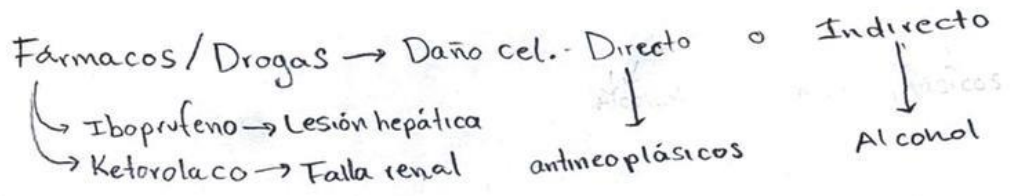 Fármacos/Drogas → Daño cel.- Directo o Indirecto
↳ Iboprufeno → Lesión hepática
↳ Ketorolaco → Falla renal antineoplásicos Alcohol